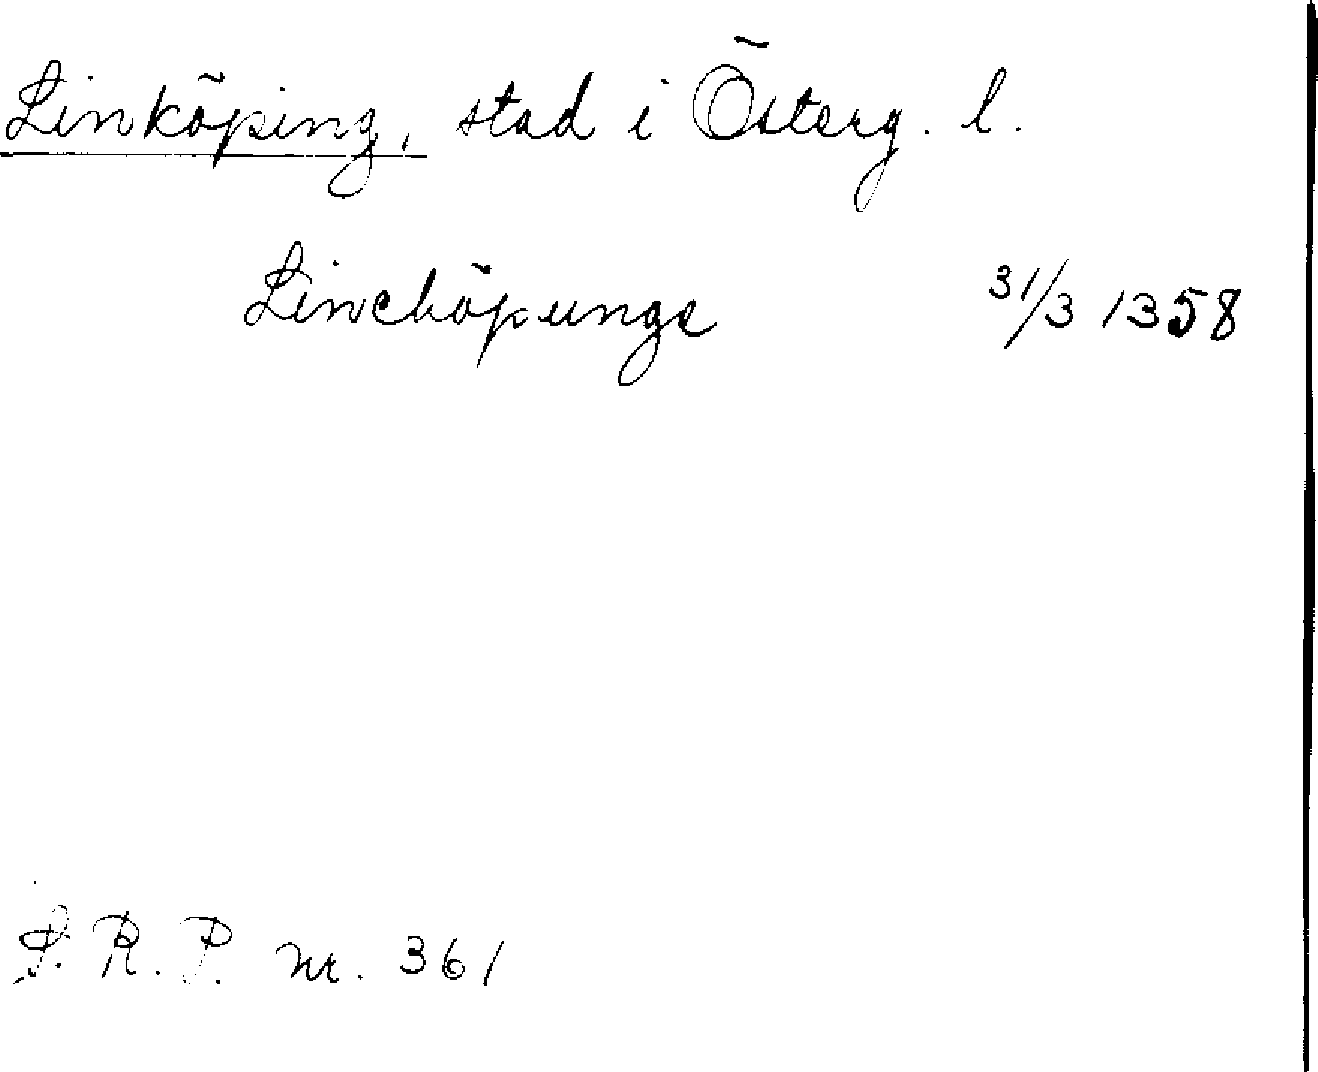 Linköping, stad i Österg. l.
Lincköpungs 31/3 1358
S. R. P. nr. 361